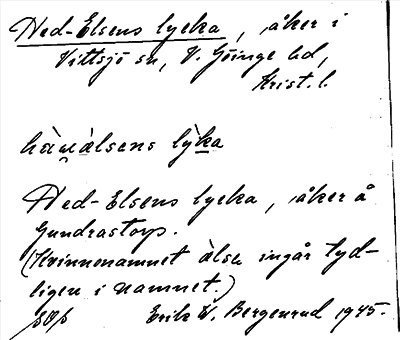 Hed-Elsens lycka, åker i
Vittsjö sn, V. Göinge hd,
Krist. l.
älsens lỳka
Hed-Elsens lycka, åker å
Gundrastorp.
(Kvinnonamnet älsa ingår tyd-
ligen i namnet.)
Erik W. Bergenrud 1945.